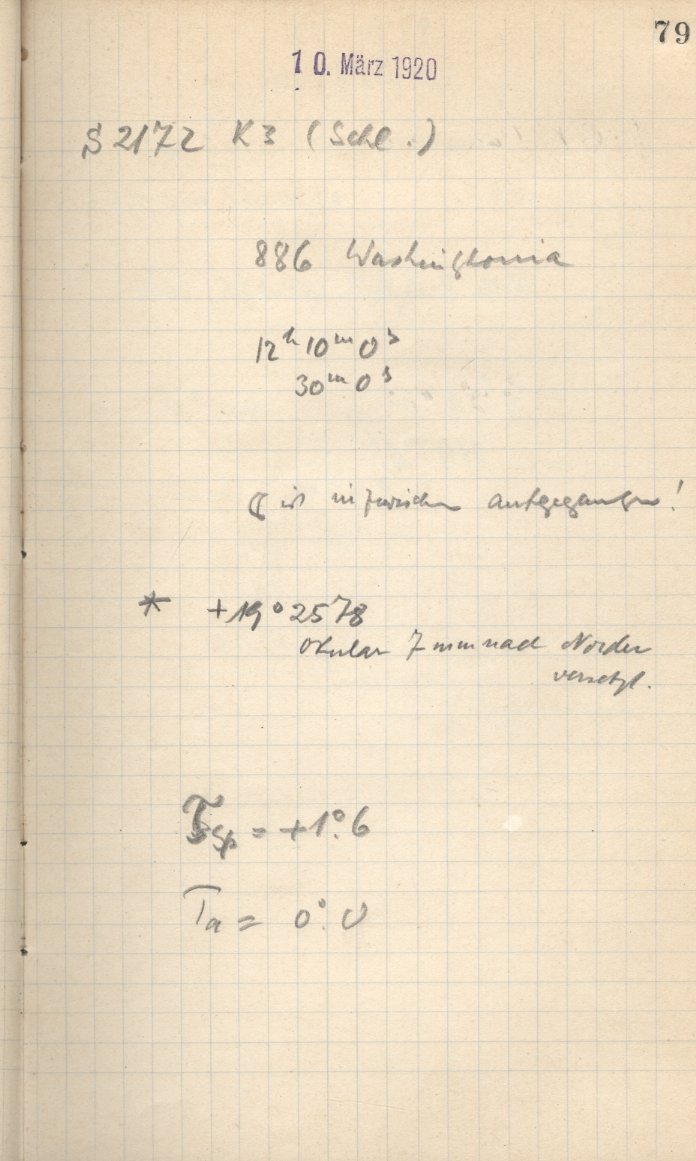 79
10. März 1920
S 2172 K3 (Schl.)
886 Washingtonia
12ʰ 10ᵐ 0ˢ
30ᵐ 0ˢ
☾ ist inzwischen aufgegangen!
* +19° 2578
Okular 7 mm nach Norden
versetzt.
= +1°.6
Ta = 0°.0